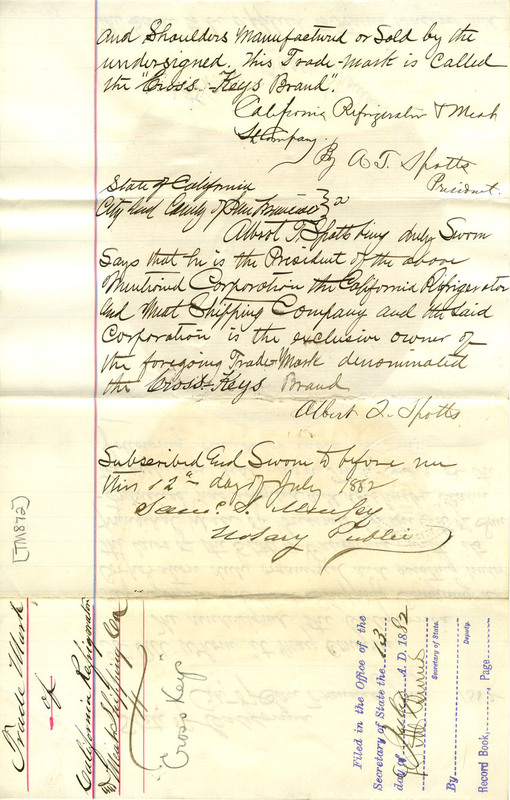 and Shoulders Manufactured or Sold by the
undersigned. This Trade-mark is called
the "Cross-Keys Brand".
California Refrigerator & Meat
Sh Company
By A. T. Spotts
President
State of California
City and County of San Francisco } ss
Albert T. Spotts being duly Sworn
Says that he is the President of the above
Mentioned Corporation the California Refrigerator
and Meat Shipping Company and the said
Corporation is the exclusive owner of
the foregoing Trade-Mark denominated
the Cross-Keys Brand
Albert T. Spotts
Subscribed and Sworn to before me
this 12th day of July 1882
Notary Public
[TM872]
Trade Mark
of
California Refrigerator
& Meat Shipping Co
"Cross Keys"
Filed in the Office of the
Secretary of State the 13
day of July A. D. 1882
Secretary of State.
By
Deputy.
Record Book, Page